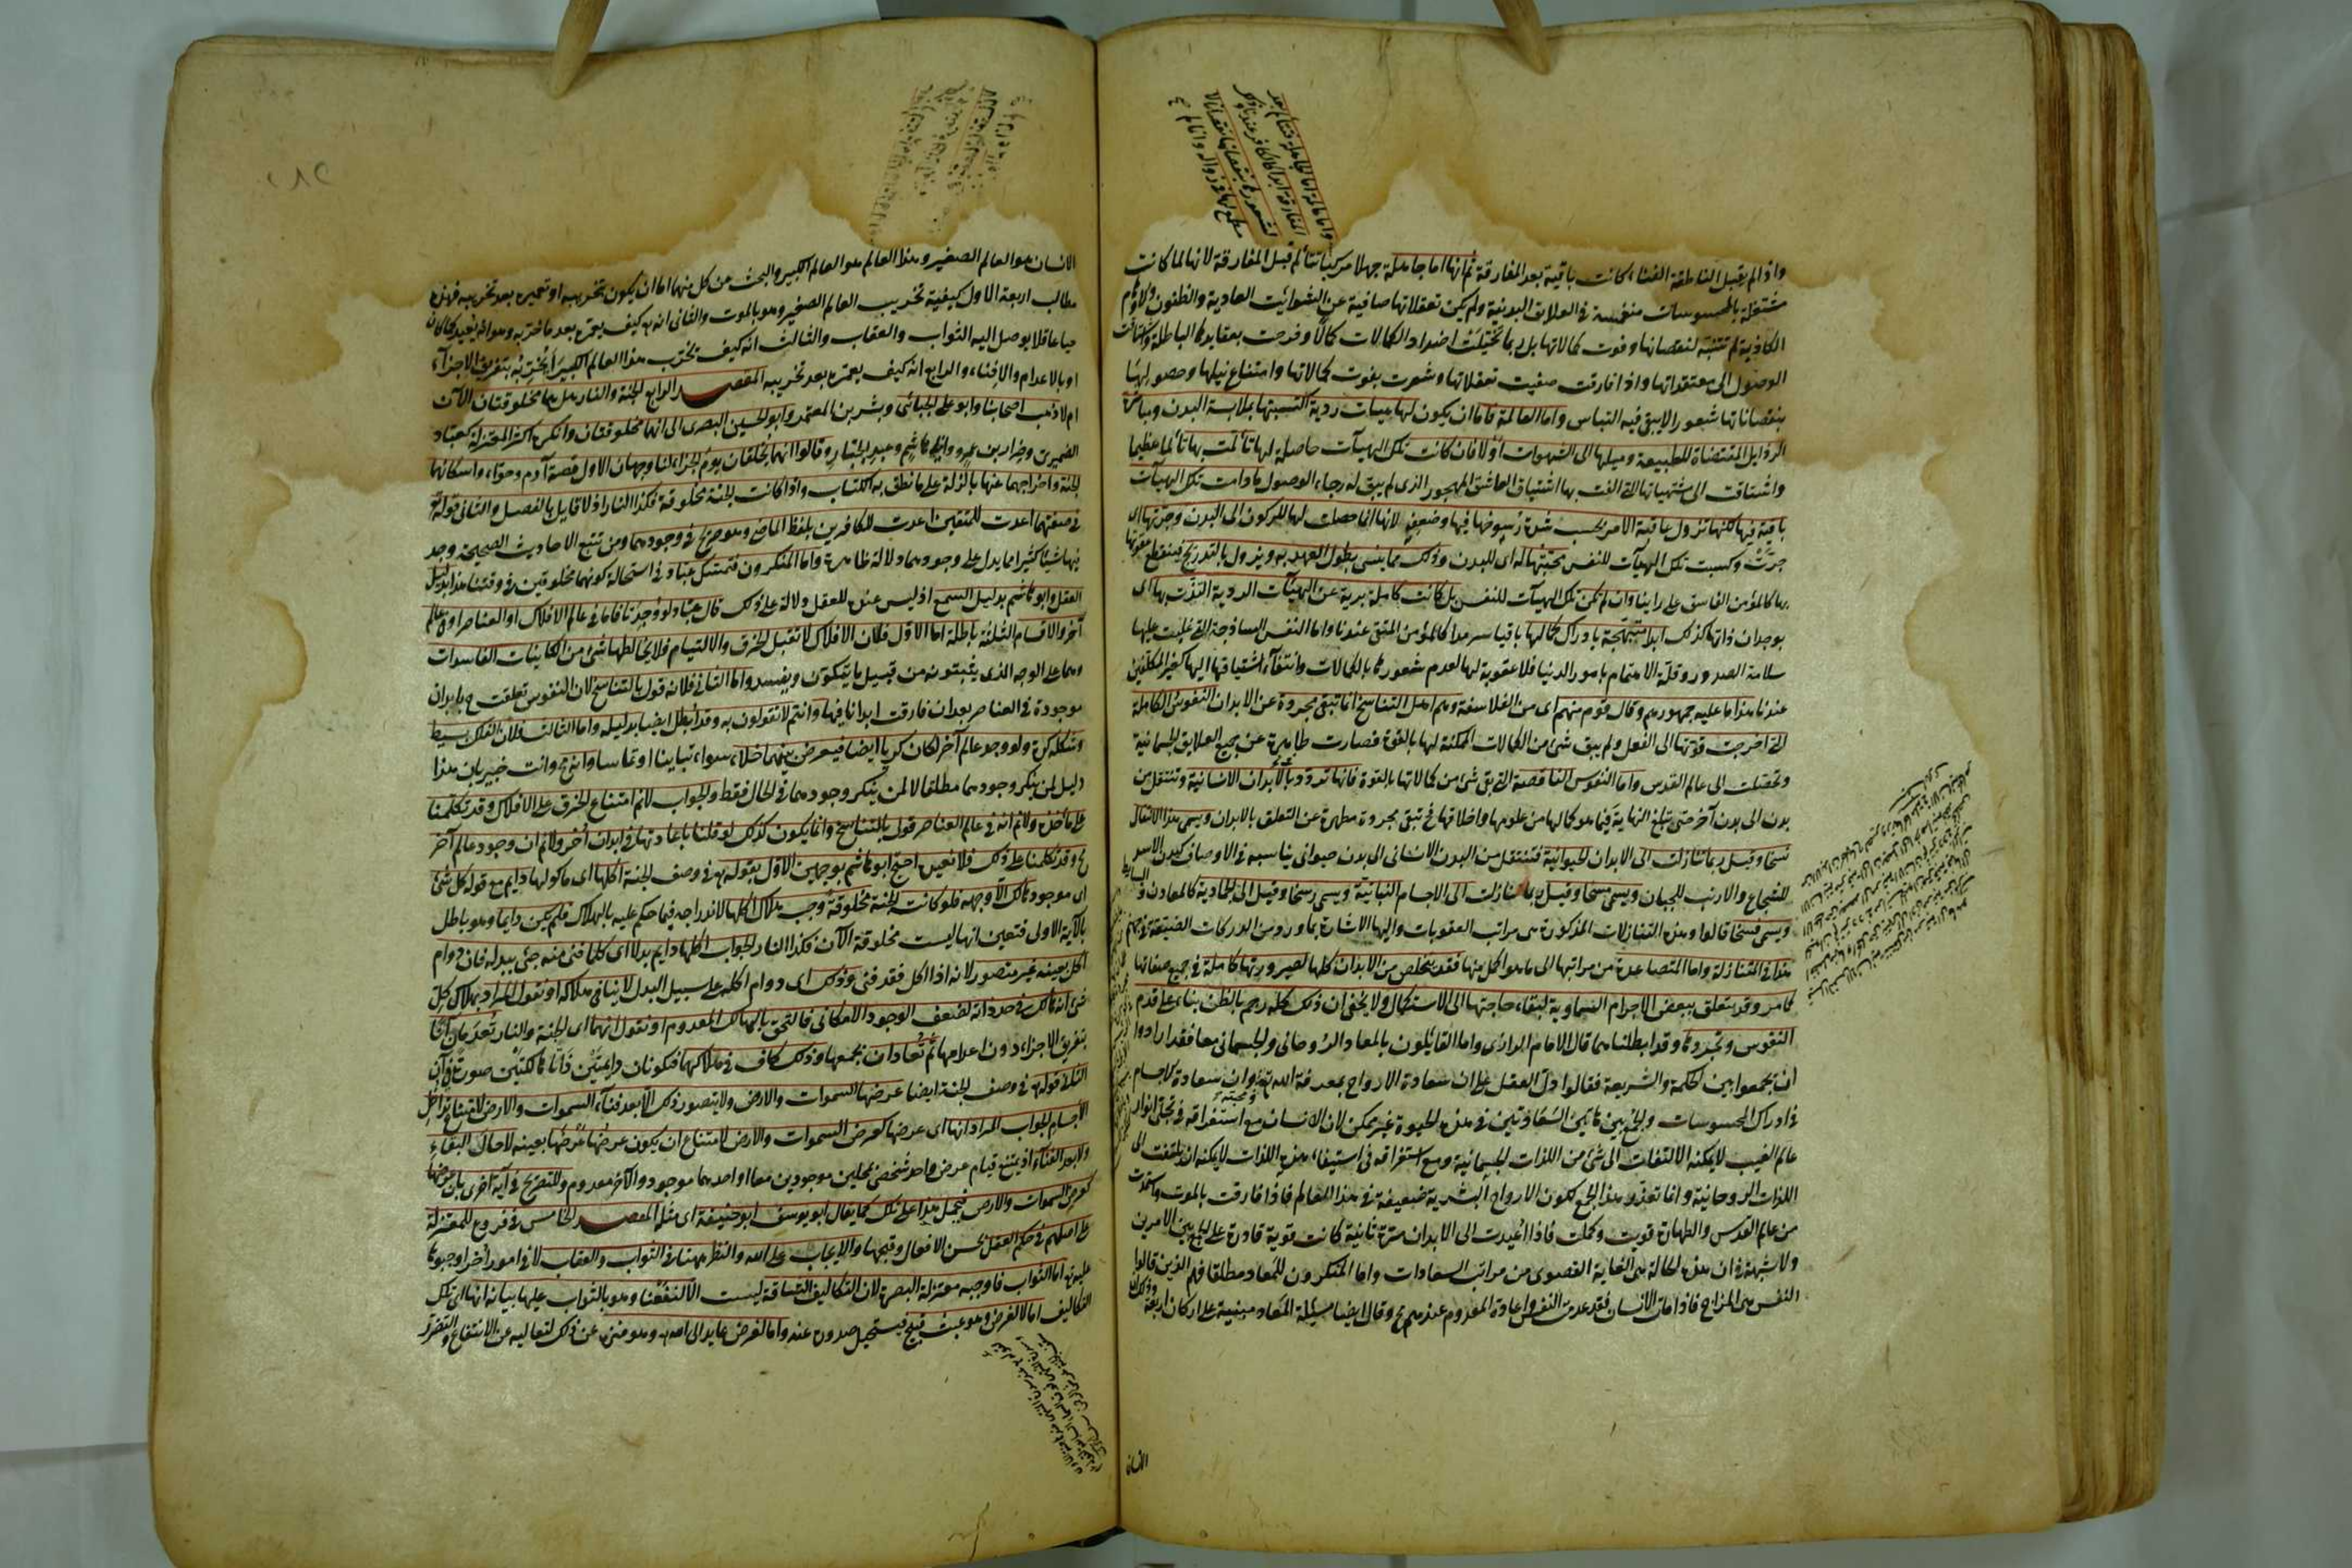 واذا لم يقبل الناطقة الفناء كانت باقية بعد المفارقة ثم انها اما جاهلة جهلا مركبا تتألم قبل المفارقة لانها لما كانت
مشتغلة بالمحسوسات منغمسة في العلايق البدنية ولم يكن تعقلاتها صافية عن الشوائب العادية والظنون والاوهام
الكاذبة لم تتنبه لنقصانها وفوت كمالاتها بل ربما تخيلت اضداد الكمالات كمالا وفرحت بعقايدها الباطلة واشتاقت
الوصول الى معتقداتها واذا فارقت صفيت تعقلاتها وشعرت بفوت كمالاتها وامتناع نيلها وحصولها
بنقصاناتها شعورا لا يبقى فيه التباس واما العالمة فاما ان يكون لها هيئات ردية اكتسبتها بملابسة البدن ومباشرة
الرذايل المقتضاة للطبيعة وميلها الى الشهوات اولا فان كانت تلك الهيآت حاصلة لها تألمت بها تألما عظيما
واشتاقت الى مشتهياتها التي الفت بها اشتياق العاشق المهجور الذي لم يبق له رجاء الوصول ما دامت تلك الهيآت
باقية فيها لكنها تزول عاقبة الامر بحسب شدة رسوخها فيها وضعفه لانها انما حصلت لها للركون الى البدن وجرتها اى
جرت وكسبت تلك الهيآت للنفس محبتها له اى للبدن وذلك مما ينسى بطول العهد به ويزول بالتدريج فينقطع عقوبتها
بها كالمؤمن الفاسق على راينا وان لم تكن تلك الهيآت للنفس بل كانت كاملة برية عن الهيآت الردية التذت بها اى
بوجدان ذاتها كذلك ابدا مبتهجة بادراك كمالها باقيا سرمدا كالمؤمن المتقى عندنا واما النفس الساذجة التي غلبت عليها
سلامة الصدور وقلة الاهتمام بامور الدنيا فلا عقوبة لها لعدم شعورها بالكمالات وانتفاء اشتياقها اليها كغير المكلفين
عندنا هذا ما عليه جمهورهم وقال قوم منهم اى من الفلاسفة وهم اهل التناسخ انما تبقى مجردة عن الابدان النفوس الكاملة
التي اخرجت قوتها الى الفعل ولم يبق شئ من الكمالات الممكنة لها بالقوة فصارت طاهرة عن جميع العلايق الجسمانية
وتخلصت الى عالم القدس واما النفوس الناقصة التي بقى شئ من كمالاتها بالقوة فانها تتردد بالابدان الانسانية وتنتقل من
بدن الى بدن آخر حتى تبلغ النهاية فيما هو كمالها من علومها واخلاقها فح تبقى مجردة مطهرة عن التعلق بالابدان ويسمى هذا الانتقال
نسخا وقيل ربما تنازلت الى الابدان الحيوانية فتنتقل من البدن الانسانى الى بدن حيوانى يناسبه في الاوصاف كبدن الاسد
للشجاع والارنب للجبان ويسمى مسخا وقيل ربما تنازلت الى الاجسام النباتية ويسمى رسخا وقيل الى الجمادية كالمعادن والبسايط
ويسمى فسخا قالوا وهذه التنازلات المذكورة هى مراتب العقوبات واليها الاشارة بما ورد من الدركات الضيقة في جهنم
هذا في المتنازلة واما المتصاعدة من مراتبها الى ما هو اكمل منها فقد يتخلص من الابدان كلها لصيرورتها كاملة في جميع صفاتها
كما مر وقد يتعلق ببعض الاجرام السماوية لبقاء حاجتها الى الاستكمال ولا يخفى ان ذلك كله رجم بالظن بناء على قدم
النفوس وتجردها وقد ابطلناهما قال الامام الرازى واما القايلون بالمعاد الروحانى والجسمانى معا فقد ارادوا
ان يجمعوا بين الحكمة والشريعة فقالوا دل العقل على ان سعادة الارواح بمعرفة الله تع ومحبته وان سعادة الاجسام
في ادراك المحسوسات والجمع بين هاتين السعادتين في هذه الحيوة غير ممكن لان الانسان مع استغراقه في تجلى انوار
عالم الغيب لا يمكنه الالتفات الى شئ من اللذات الجسمانية ومع استغراقه في استيفاء هذه اللذات لا يمكنه ان يلتفت الى
اللذات الروحانية وانما تعذر هذا الجمع لكون الارواح البشرية ضعيفة في هذا العالم فاذا فارقت بالموت واستمدت
من عالم القدس والطهارة قويت وكملت فاذا اعيدت الى الابدان مرة ثانية كانت قوية قادرة على الجمع بين الامرين
ولا شبهة في ان هذه الحالة هى الغاية القصوى من مراتب السعادات واما المنكرون للمعاد مطلقا فهم الذين قالوا
النفس هى المزاج فاذا مات الانسان فقد عدمت النفس واعادة المعدوم عندهم مح وقال ايضا مسئلة المعاد مبنية على اركان اربعة وذلك ان
الانسان
الانسان هو العالم الصغير وهذا العالم هو العالم الكبير والبحث عن كل منهما اما ان يكون تخريبه او تعميره بعد تخريبه فهذه
مطالب اربعة الاول كيفية تخريب العالم الصغير وهو بالموت والثانى انه تع كيف يعمره بعد ما خربه وهو انه يعيده كما كان
حيا عاقلا يوصل اليه الثواب والعقاب والثالث انه كيف يخرب هذا العالم الكبير أيخربه بتفريق الاجزاء
او بالاعدام والافناء والرابع انه كيف يعمره بعد تخريبه المقصد الرابع الجنة والنار هل هما مخلوقتان الآن
ام لا ذهب اصحابنا وابو على الجبائى وبشر بن المعتمر وابو الحسين البصرى الى انهما مخلوقتان وانكره اكثر المعتزلة كعباد
الضميرى وضرار بن عمرو وابى هاشم وعبد الجبار وقالوا انهما يخلقان يوم الجزاء لنا وجهان الاول قصة آدم وحواء واسكانهما
الجنة واخراجهما عنها بالزلة على ما نطق به الكتاب واذا كانت الجنة مخلوقة فكذا النار اذ لا قايل بالفصل والثانى قوله تع
في صفتهما اعدت للمتقين اعدت للكافرين بلفظ الماضى وهو صريح في وجودهما ومن تتبع الاحاديث الصحيحة وجد
فيها شيئا كثيرا مما يدل على وجودهما دلالة ظاهرة واما المنكرون فتمسك عباد في استحالة كونهما مخلوقتين في وقتنا هذا بدليل
العقل وابو هاشم بدليل السمع اذ ليس عنده للعقل دلالة على ذلك قال عباد لو وجدتا فاما في عالم الافلاك او العناصر او في عالم
آخر والاقسام الثلثة باطلة اما الاول فلان الافلاك لا تقبل الخرق والالتيام فلا يخالطها شئ من الكاينات الفاسدات
وهما على الوجه الذي يثبتونه من قبيل ما يتكون ويفسد واما الثانى فلانه قول بالتناسخ لان النفوس تعلقت ح بابدان
موجودة في العناصر بعد ان فارقت ابدانا فيها وانتم لا تقولون به وقد ابطل ايضا بدليله واما الثالث فلان الفلك بسيط
وشكله كرة ولو وجد عالم آخر لكان كريا ايضا فيعرض بينهما خلاء سواء تباينا او تماسا وانه مح وانت خبير بان هذا
دليل لمن ينكر وجودهما مطلقا لا لمن ينكر وجودهما في الحال فقط والجواب لانم امتناع الخرق على الافلاك وقد تكلمنا
على ماخذه ولانم انه في عالم العناصر قول بالتناسخ وانما يكون كذلك لو قلنا باعادتها في ابدان اخر ولانم ان وجود عالم آخر
مح وقد تكلمنا على ذلك فلا نعيده احتج ابو هاشم بوجهين الاول بقوله تع في وصف الجنة اكلها اى ماكولها دايم مع قوله كل شئ
اى موجود هالك الا وجهه فلو كانت الجنة مخلوقة وجب هلاك اكلها لاندراجه فيما حكم عليه بالهلاك فلم يكن دايما وهو باطل
بالآية الاولى فتعين انها ليست مخلوقة الآن فكذا النار والجواب اكلها دايم بدلا اى كلما فنى منه جئ ببدله فان دوام
اكل بعينه غير متصور لانه اذا اكل فقد فنى وذلك اى دوام اكله على سبيل البدل لا ينافى هلاكه او نقول المراد بهلاك كل
شئ انه هالك في حد ذاته لضعف الوجود الامكانى فالتحق بالهالك المعدوم او نقول انهما اى الجنة والنار تعدمان آنا
بتفريق الاجزاء دون اعدامها ثم تعادان بجمعها وذلك كاف في هلاكهما فتكونان دايمتين ذاتا هالكتين صورة في آن
الثانى قوله تع في وصف الجنة ايضا عرضها السموات والارض ولا يتصور ذلك الا بعد فناء السموات والارض لامتناع تداخل
الاجسام والجواب المراد انها اى عرضها كعرض السموات والارض لامتناع ان يكون عرضها عرضها بعينه لا حال البقاء
ولا بعد الفناء اذ يمتنع قيام عرض واحد شخصى بمحلين موجودين معا او احدهما موجود والآخر معدوم وللتصريح في آية اخرى بان عرضها
كعرض السموات والارض فيحمل هذا على تلك كما يقال ابو يوسف ابو حنيفة اى مثله المقصد الخامس في فروع للمعتزلة
على اصلهم في حكم العقل بحسن الافعال وقبحها والايجاب على الله والنظر ههنا في الثواب والعقاب لا في امور اخر اوجبوها
عليه تع اما الثواب فاوجبه معتزلة البصرة لان التكاليف الشاقة ليست الا لنفعنا وهو بالثواب عليها بيانه انها اى تلك
التكاليف اما لا لغرض وهو عبث قبيح فيستحيل صدوره عنه واما لغرض عايد الى الله تع وهو منزه عن ذلك لتعاليه عن الانتفاع والتضرر